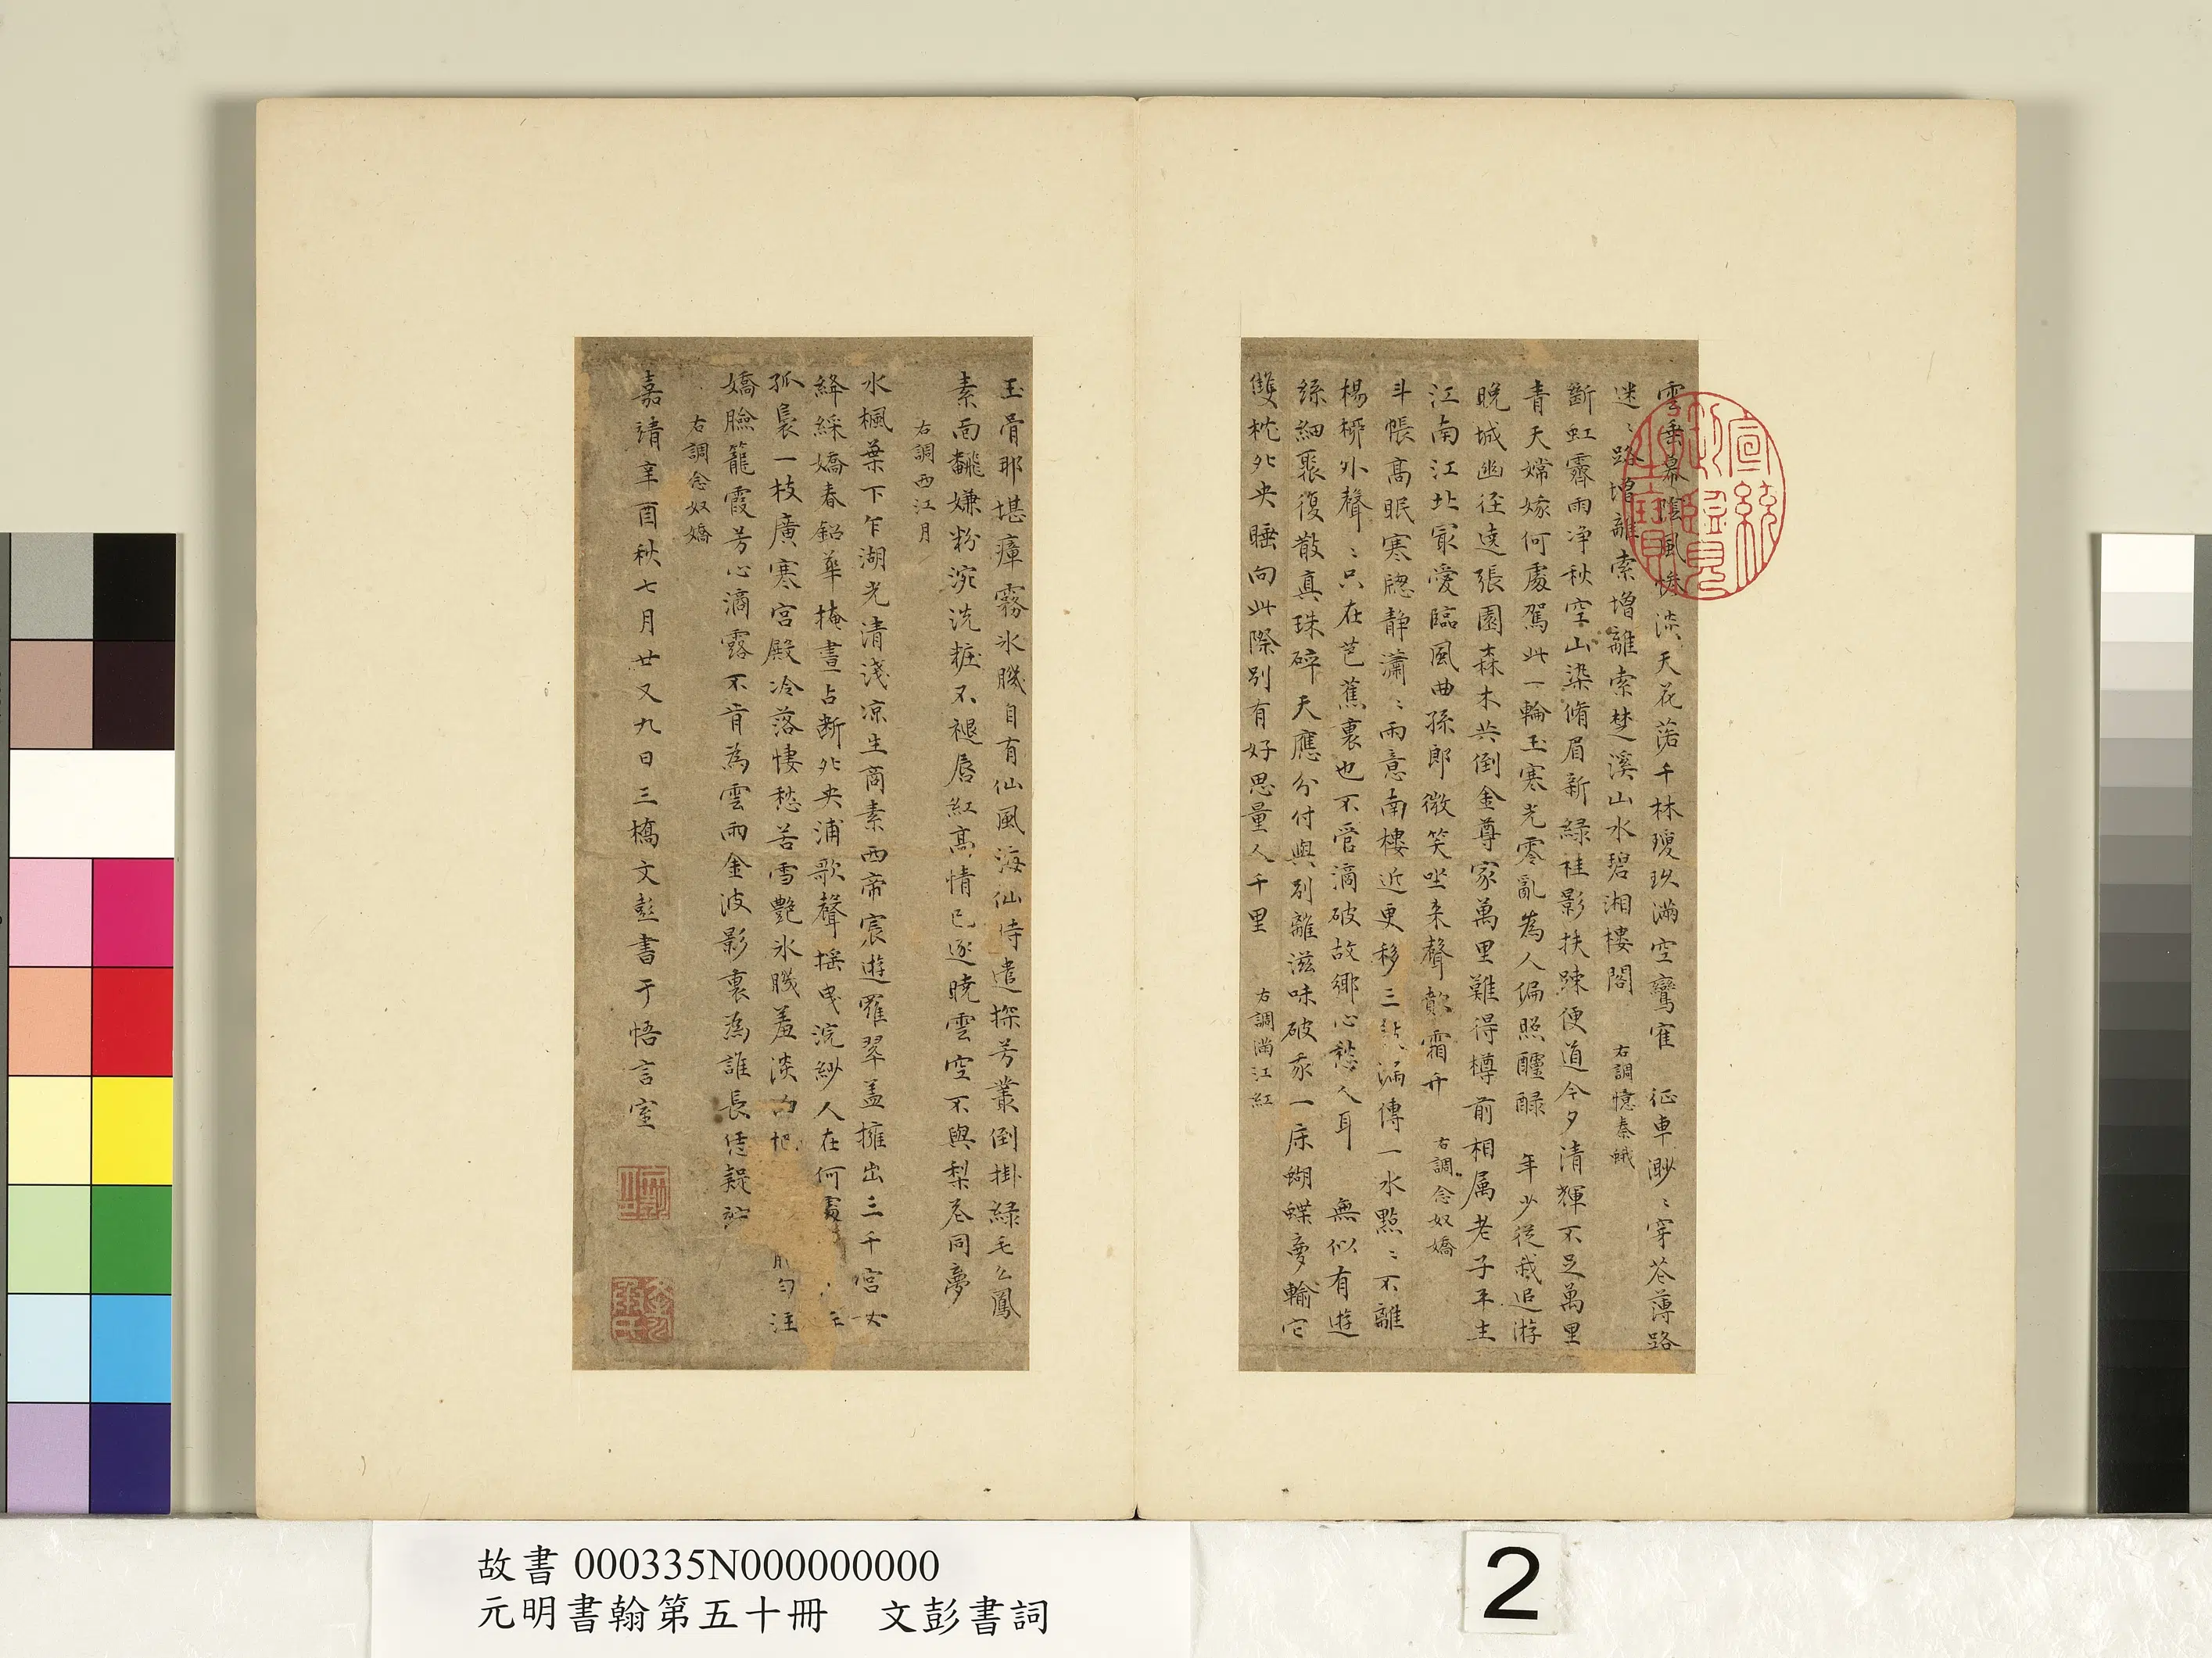 雲垂幕陰風慘淡天花落千林瓊玖滿空鸞隺　征車渺〻穿花薄路
迷〻路增離索增離索楚溪山水碧湘樓閣　右調憶秦蛾
斷虹霽雨净秋空山染脩眉新緑桂影扶踈便道今夕清輝不足萬里
青天嫦娥何處駕此一輪玉寒光零亂為人偏照醽醁　年少從我追游
晚城幽徑遶張園森木共倒金尊家萬里難得樽前相属老子平生
江南江北㝡愛臨風曲孫郎微笑坐来聲歕霜竹　右調念奴嬌
斗帳高眠寒牕静瀟〻雨意南樓近更移三漏傳一水點〻不離
楊栁外聲〻只在芭蕉裏也不管滴破故鄉心愁人耳　無似有遊
絲細聚復散真珠碎天應分付與别離滋味破我一床蝴蝶夢輸它
雙枕鴛鴦睡向此際别有好思量人千里　右調滿江紅
玉骨那堪瘴霧氷肌自有仙風海仙時遣探芳叢倒掛緑毛么鳳
素面翻嫌粉涴洗粧不褪唇紅高情已逐曉雲空不與梨花同夢
右調西江月
水楓葉下乍湖光清淺凉生商素西帝宸遊羅翠盖擁出三千宮女
絳綵嬌春鉛華掩晝占断鴛鴦浦歌聲摇曳浣紗人在何處
孤裊一枝廣寒宮殿冷落悽愁苦雪艷氷肌羞淡泊把勻注
嬌臉籠霞芳心滴露不肯為雲雨金波影裏為誰長恁凝竚
右調念奴嬌
嘉靖辛酉秋七月廿又九日三橋文彭書于悟言室
宣統御覽之寶
故書 000335N000000000
元明書翰第五十冊　文彭書詞
2